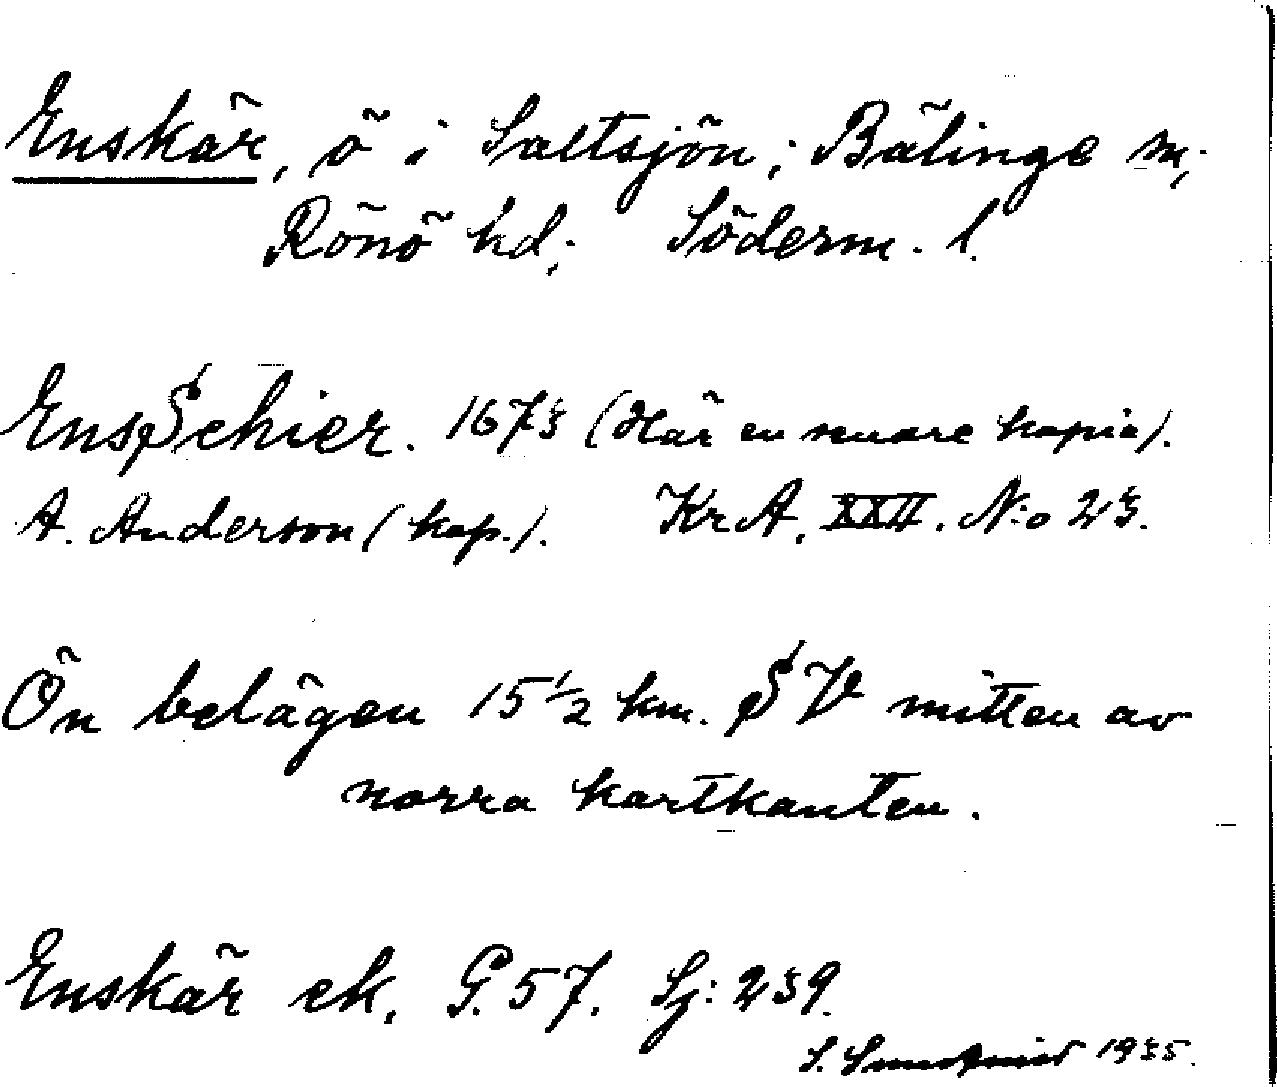 Enskär, ö i Saltsjön; Bälinge sn;
Rönö hd; Söderm. l.
EnsSchier. 1673 (Här en senare kopia).
A. Anderson (kop.). KrA, XXII. N:o 23.
Ön belägen 15 1/2 km. SV mitten av
norra kartkanten.
Enskär ek. G. 57. Sj: 239.
S. 1935.